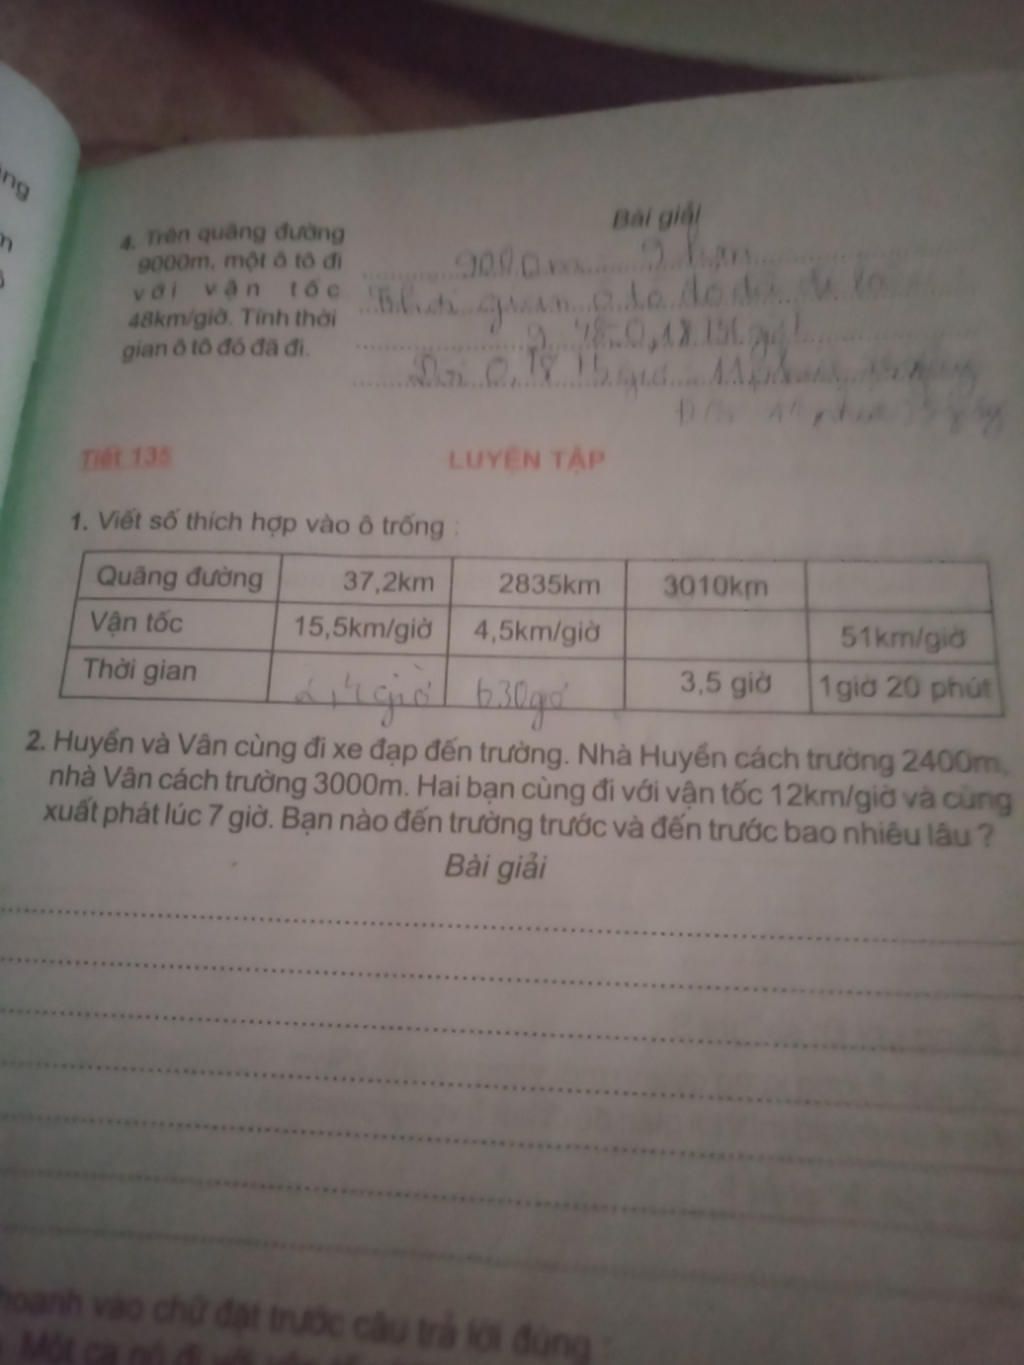 ng
4. Trên quãng đường
9000m, một ô tô đi
với vận tốc
48km/giờ. Tính thời
gian ô tô đó đã đi.
Bài giải
9000m 9 km
Thời gian ô tô đó đã đi là
9 48 0,1875 giờ
Đổi 0,1875 giờ 11 phút
Tiết 135 LUYỆN TẬP
1. Viết số thích hợp vào ô trống :
Quãng đường 37,2km 2835km 3010km
Vận tốc 15,5km/giờ 4,5km/giờ 51km/giờ
Thời gian 2,4 giờ 630 giờ 3,5 giờ 1giờ 20 phút
2. Huyền và Vân cùng đi xe đạp đến trường. Nhà Huyền cách trường 2400m,
nhà Vân cách trường 3000m. Hai bạn cùng đi với vận tốc 12km/giờ và cùng
xuất phát lúc 7 giờ. Bạn nào đến trường trước và đến trước bao nhiêu lâu ?
Bài giải
hoanh vào chữ đặt trước câu trả lời đúng :
Một ca nô đi với vận